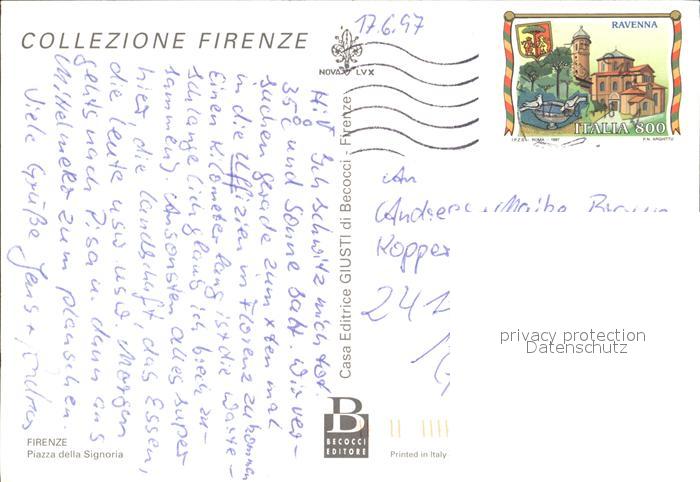 COLLEZIONE FIRENZE
17.6.97
NOVA LVX
RAVENNA
ITALIA 800
I.P.Z.S. - ROMA - 1997
Hilf Ich schwitz mich tot.
35° und Sonne satt. Wir ver-
suchen gerade zum xten mal
in die Uffizien in Florenz zu kommen
Einen Kilometer lang ist die Warte-
schlange (ich glaub ich brech zu-
sammen) Ansonsten alles super
hier, die Landschaft, das Essen,
die Leute usw usw. Morgen
gehts nach Pisa u. dann ans
Mittelmeer zum planschen.
Viele Grüße Jens +
Casa Editrice GIUSTI di Becocci - Firenze
An
Andreas Maike
Kopper
241
privacy protection
Datenschutz
B
BECOCCI
EDITORE
Printed in Italy
FIRENZE
Piazza della Signoria